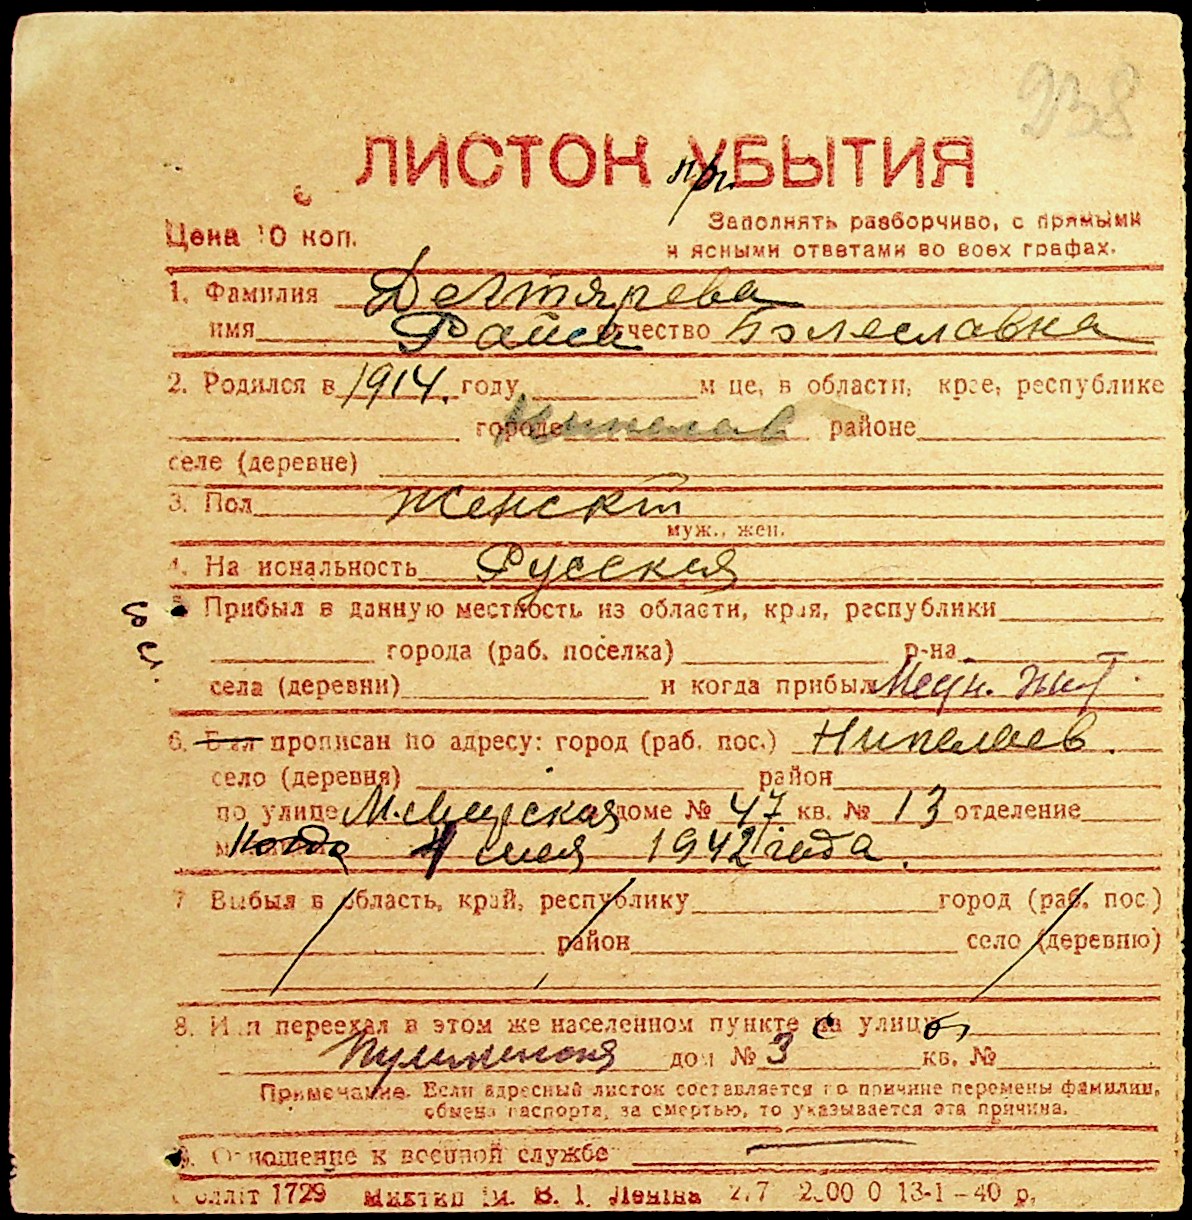 238
ЛИСТОН пр. УБЫТИЯ
Цена 10 коп.
Заполнять разборчиво, с прямыми
и ясными ответами во всех графах.
1. Фамилия Дегтярева
имя Раиса отчество Болеславна
2. Родился в 1914. году м-це, в области, крае, республике
городе Николаев районе
селе (деревне)
3. Пол женский
муж., жен.
4. Национальность Русская
5 Прибыл в данную местность из области, края, республики
города (раб. поселка) р-на
села (деревни) и когда прибыл Местн. жит.
6. Был прописан по адресу: город (раб. пос.) Николаев.
село (деревня) район
по улице М.Морская доме № 47 кв. № 13 отделение
когда 4 мая 1942 года.
7 Выбыл в область, край, республику город (раб. пос.)
район село (деревню)
8. Или переехал в этом же населенном пункте с улицы
Пушкинская дом № 3 кв. №
Примечание. Если адресный листок составляется по причине перемены фамилии,
обмена паспорта, за смертью, то указывается эта причина.
9. Отношение к военной службе
1729 Леніна 13-1-40 р.